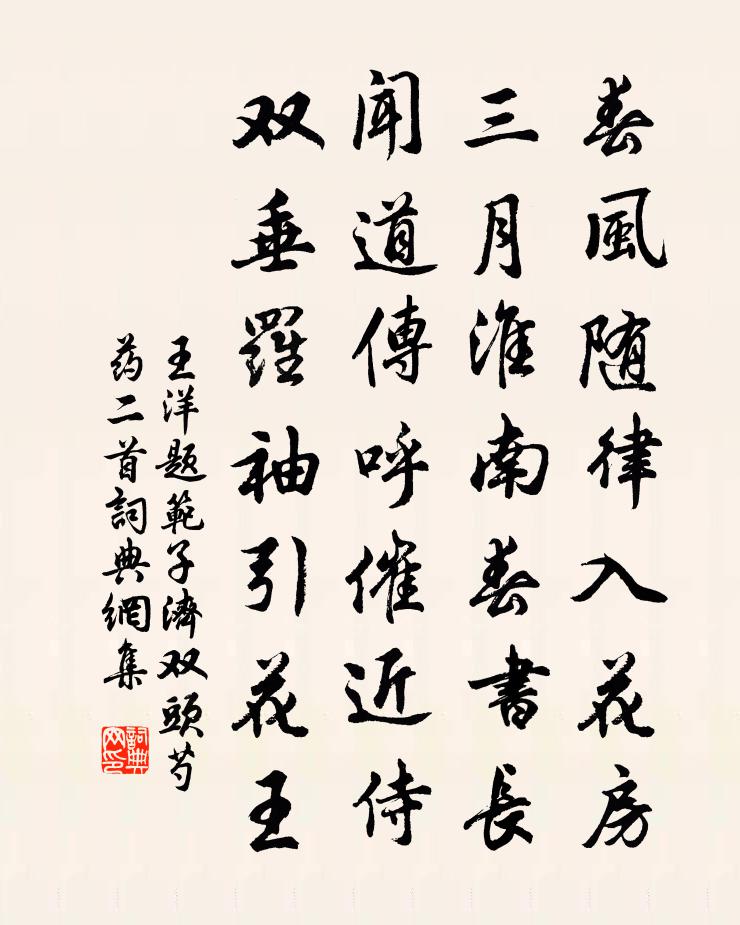 春風随律入花房
三月淮南春書長
闻道傳呼催近侍
双垂羅袖引花王
王洋題範子濟双頭芍
药二首詞典網集
詞典网印